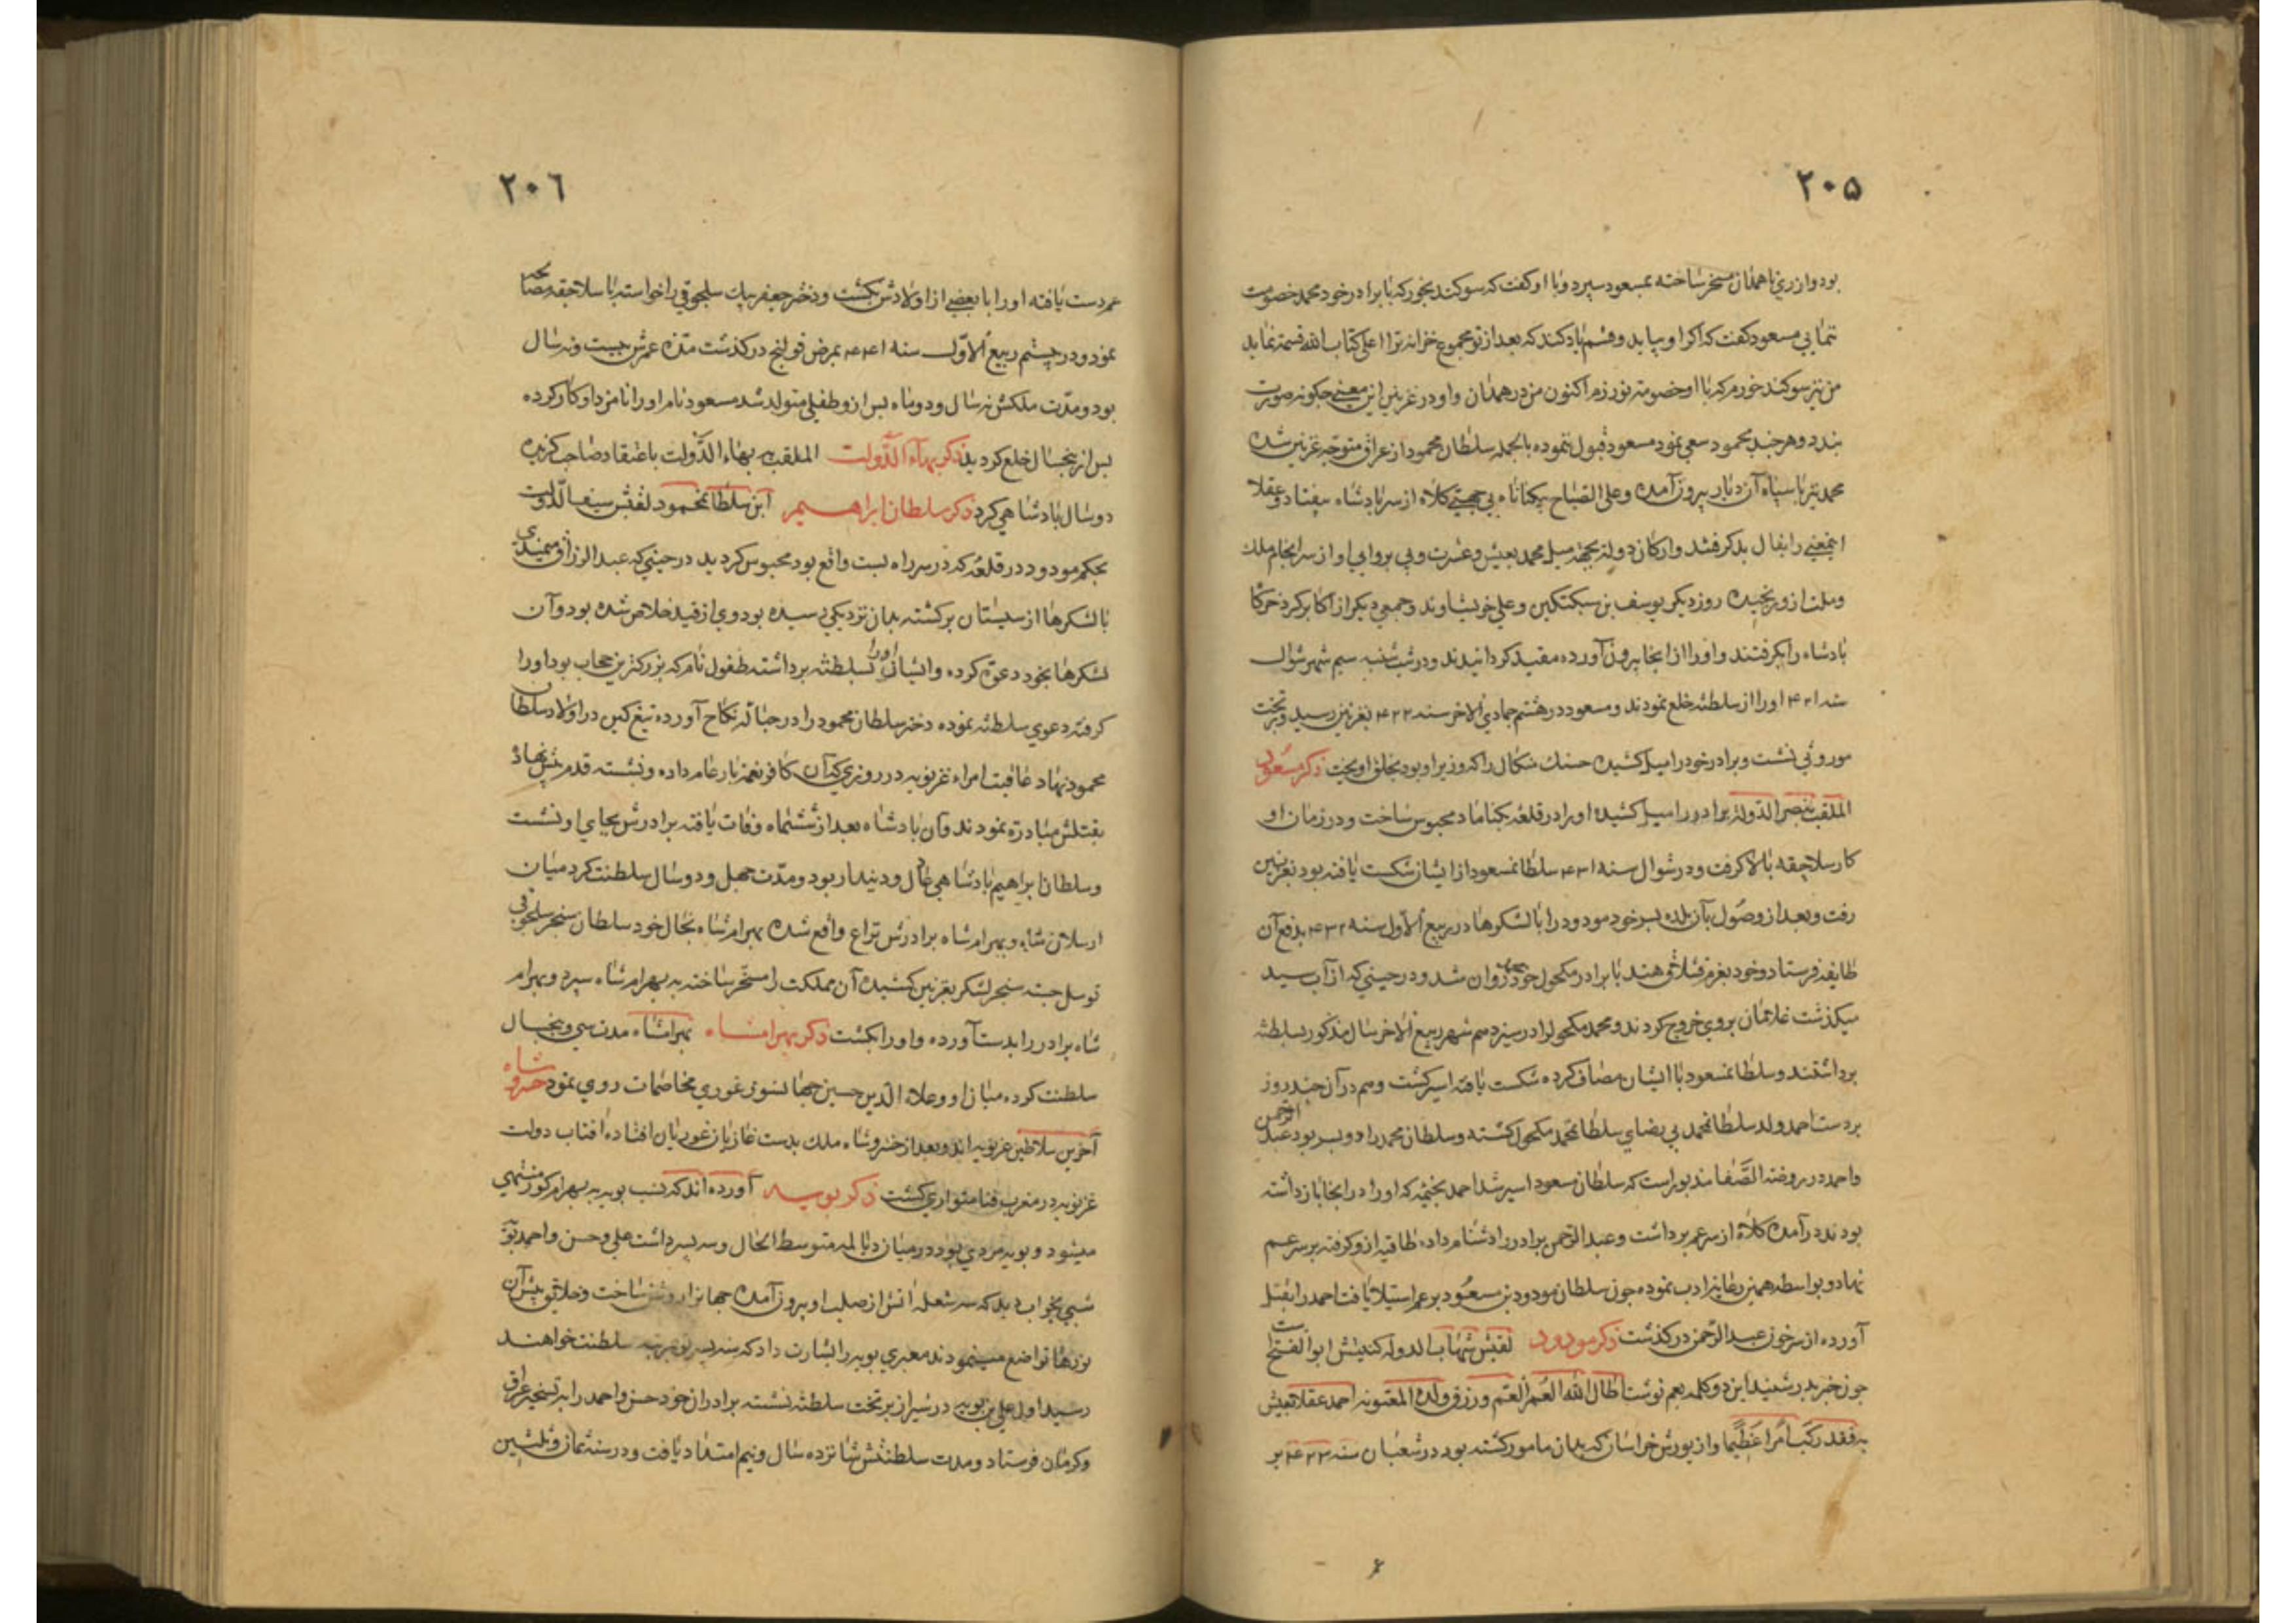 ٢٠٥
بود و از ری تا همدان مسخر ساخته بمسعود سپرد و با او کفت که سوکند بخور که با برادر خود محمد خصومت
ننمایی مسعود کفت که اکر او بیاید و قسم یاد کند که بعد از تو مجموع خزانه ترا علی کتاب الله قسمة نماید
من نیز سوکند خورم که با او خصومة نورزم اکنون من در همدان و او در غزنین این معنی چکونه صورت
بندد و هر چند محمود سعی نمود مسعود قبول ننموده بالجمله سلطان محمود از عراق متوجّه غزنین شده
محمد نیز با سپاه آن دیار بیرون آمده و علی الصباح بیکناکاه بی جهتی کلاه از سر پادشاه بیفتاد و عقلا
اینمعنی را بفال بد کرفتند و ارکان دولة بجهة میل محمد بعیش و عشرت و بی پروایی او از سرانجام ملک
و ملت ازو رنجیده روز دیکر یوسف بن سبکتکین و علی خویشاوند و جمعی دیکر از اکابر کرد خرکاه
پادشاه را بکرفتند و او را از آنجا بیرون آورده مقید کردانیدند و در شب شنبه سیم شهر شوال
سنه ۴۲۱ او را از سلطنه خلع نمودند و مسعود در هشتم جمادی الاخر سنه ۴۲۲ بغزنین رسید و بر تخت
موروثی نشست و برادر خود را میل کشیده حسنک میکال را که وزیر او بود بحلق اویخت ذکر مسعود
الملقب بنصر الدوله برادر را میل کشیده او را در قلعه محبوس ساخت و در زمان او
کار سلاجقه بالا کرفت و در شوال سنه ۴۳۱ سلطان مسعود از ایشان شکست یافته بود بغزنین
رفت و بعد از وصول بآن بلده پسر خود مودود را با لشکرها در ربیع الاول سنه ۴۳۲ بدفع آن
طایفه فرستاد و خود بعزم قشلاق هند با برادر مکحول خود روان شد و در حینی که از آب سند
میکذشت غلامان بروی خروج کردند و محمد مکحول را در سیزدهم شهر ربیع الاخر سال مذکور بسلطنه
برداشتند و سلطان مسعود با ایشان مصاف کرده شکست یافته اسیر کشت و هم در آن چند روز
بردست احمد ولد سلطان محمد بی رضای سلطان محمد مکحول کشته و سلطان محمد را دو پسر بود عبد الرحمن
و احمد در روضة الصفا مذبور است که سلطان مسعود اسیر شد احمد بخیمه که او را در انجا باز داشته
بودند در آمده کلاه از سر عم برداشت و عبد الرحمن برادر را دشنام داده طاقیه ازو کرفته بر سر عم
نهاد و بواسطه همین رعایت ادب نموده چون سلطان مودود بن مسعود بر عم استیلا یافت احمد را بقتل
آورده از سر خون عبد الرحمن در کذشت ذکر مودود لقبش شهاب الدوله کنیتش ابو الفتح است
چون خبر پدر شنید این دو کلمه بعم نوشت اطال الله العمر العم و رزق ولده المعتوه احمد عقلا تعیش
به فقد رکب امرا عظیما و از یورش خراسان که بدان مامور کشته بود در شعبان سنه ۴۳۳ بر
٢٠٦
عم دست یافته او را با بعضی از اولادش بکشت و دختر جعفر بیک سلجوقی را خواسته با سلاجقه مصالحه
نمود و در بیستم ربیع الاوّل سنه ۴۴۱ بمرض قولنج در کذشت مدّة عمرش بیست و نه سال
بود و مدّت ملکش نه سال و دو ماه پس ازو طفلی متولد شد مسعود نام او را نامزد او کار کرده
پس از پنجسال خلع کردید ذکر بهاء الدّولت الملقب به بهاء الدّولت باعتقاد صاحب کزیده
دو سال پادشاهی کرد ذکر سلطان ابراهیم ابن سلطان محمود لقبش سیف الدّولت
بحکم مودود در قلعه که در سر راه بست واقع بود محبوس کردید در حینی که عبد الرزاق میمندی
با لشکرها از سیستان برکشته بدان نزدیکی رسیده بود وی از قید خلاص شده بود و آن
لشکرها بخود دعوة کرده و ایشان او را بسلطنه برداشته طغرل نام که بزرکترین حجاب بود او را
کرفته دعوی سلطنه نموده دختر سلطان محمود را در حباله نکاح آورده تیغ کین در اولاد سلطان
محمود نهاد عاقبت امراء غزنویه در روزی که آن کافر نعمة بار عام داده و نشسته قدم پیش نهاد
بقتلش مبادرة نمودند و آن پادشاه بعد از ششماه وفات یافته برادرش بجای او نشست
و سلطان ابراهیم پادشاهی عادل و دیندار بود و مدّت چهل و دو سال سلطنت کرد میان
ارسلان شاه و بهرام شاه برادرش نزاع واقع شده بهرام شاه بخال خود سلطان سنجر سلجوقی
توسل جسته سنجر لشکر بغزنین کشیده آن مملکت را مسخّر ساخته به بهرام شاه سپرد و بهرام
شاه برادر را بدست آورده و او را بکشت ذکر بهرامشاه بهرامشاه مدت سی و پنجسال
سلطنت کرده میان او و علاء الدین حسین جهانسوز غوری مخاصمات روی نمود خسرو شاه
آخرین سلاطین غزنویه اند و بعد از خسرو شاه ملک بدست غازیان غوریان افتاده افتاب دولت
غزنویه در مغرب فنا متواری کشت ذکر بویه آورده اند که نسب بویه به بهرام کور منتهی
میشود و بویه مردی بود در میان دیالمه متوسط الحال و سه پسر داشت علی و حسن و احمد بویه
شبی بخواب دید که سه شعله اتش از صلب او بیرون آمده جهانرا روشن ساخت و خلایق پیش آن
نورها تواضع مینمودند معبری بویه را بشارت داد که سه پسر تو بمرتبه سلطنت خواهند
رسید اول علی بن بویه در شیراز بر تخت سلطنه نشسته برادران خود حسن و احمد را به تسخیر عراق
و کرمان فرستاد و مدت سلطنتش شانزده سال و نیم امتداد یافت و در سنه ثمان و ثلثین